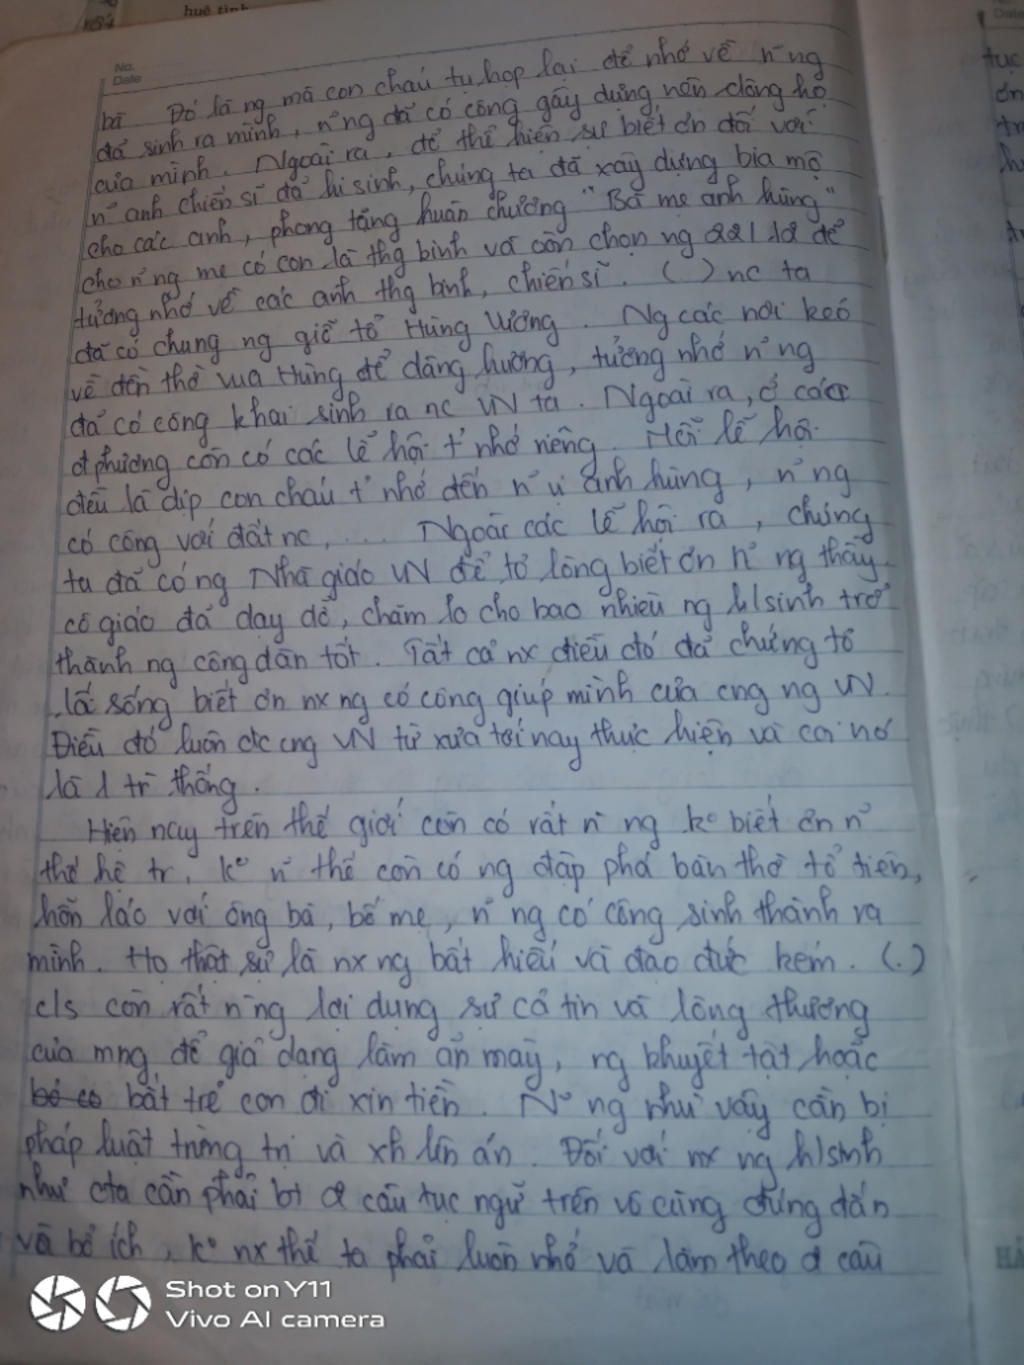 huê tinh
No.
Date
bā Đó là ng mà con cháu tụ họp lại để nhớ về n~ng
đã sinh ra mình, n~ng đã có công gây dựng nên dòng họ
của mình. Ngoài ra, để thể hiện sự biết ơn đối với
n~ anh chiến sĩ đã hi sinh, chúng ta đã xây dựng bia mộ
cho các anh, phong tặng huân chương "Bà mẹ anh hùng"
cho n~ng mẹ có con là thg binh và còn chọn ng 22/12 để
tưởng nhớ về các anh thg binh, chiến sĩ. ( ) nc ta
đã có chung ng giỗ tổ Hùng Vương. Ng các nơi kéo
về đền thờ vua Hùng để dâng hương, tưởng nhớ n~ng
đã có công khai sinh ra nc VN ta. Ngoài ra, ở các
đphương còn có các lễ hội t' nhớ riêng. Mỗi lễ hội
đều là dịp con cháu t' nhớ đến n~ vị anh hùng, n~ng
có công với đất nc, .... Ngoài các lễ hội ra, chúng
ta đã có ng Nhà giáo VN để tỏ lòng biết ơn n~ ng thầy
cô giáo đã dạy dỗ, chăm lo cho bao nhiêu ng h/sinh trở
thành ng công dân tốt. Tất cả nx điều đó đã chứng tỏ
lẽ sống biết ơn nx ng có công giúp mình của cng ng VN.
Điều đó luôn đc cng VN từ xưa tới nay thực hiện và coi nó
là 1 tr` thống.
Hiện nay trên thế giới còn có rất n` ng k° biết ơn n~
thế hệ tr, k° n~ thế còn có ng đập phá bàn thờ tổ tiên,
hỗn láo với ông bà, bố mẹ, n~ng có công sinh thành ra
mình. Họ thật sự là nx ng bất hiếu và đạo đức kém. (.)
c/s còn rất n` ng lợi dụng sự cả tin và lòng thương
của mng để giả dạng làm ăn mày, ng khuyết tật hoặc
bắt trẻ con đi xin tiền. N~ ng như vậy cần bị
pháp luật trừng trị và xh lên án. Đối với nx ng h/sinh
như cta cần phải bt đ câu tục ngữ trên vô cùng đúng đắn
và bổ ích, k° nx thế ta phải luôn nhớ và làm theo đ câu
Shot on Y11
Vivo AI camera